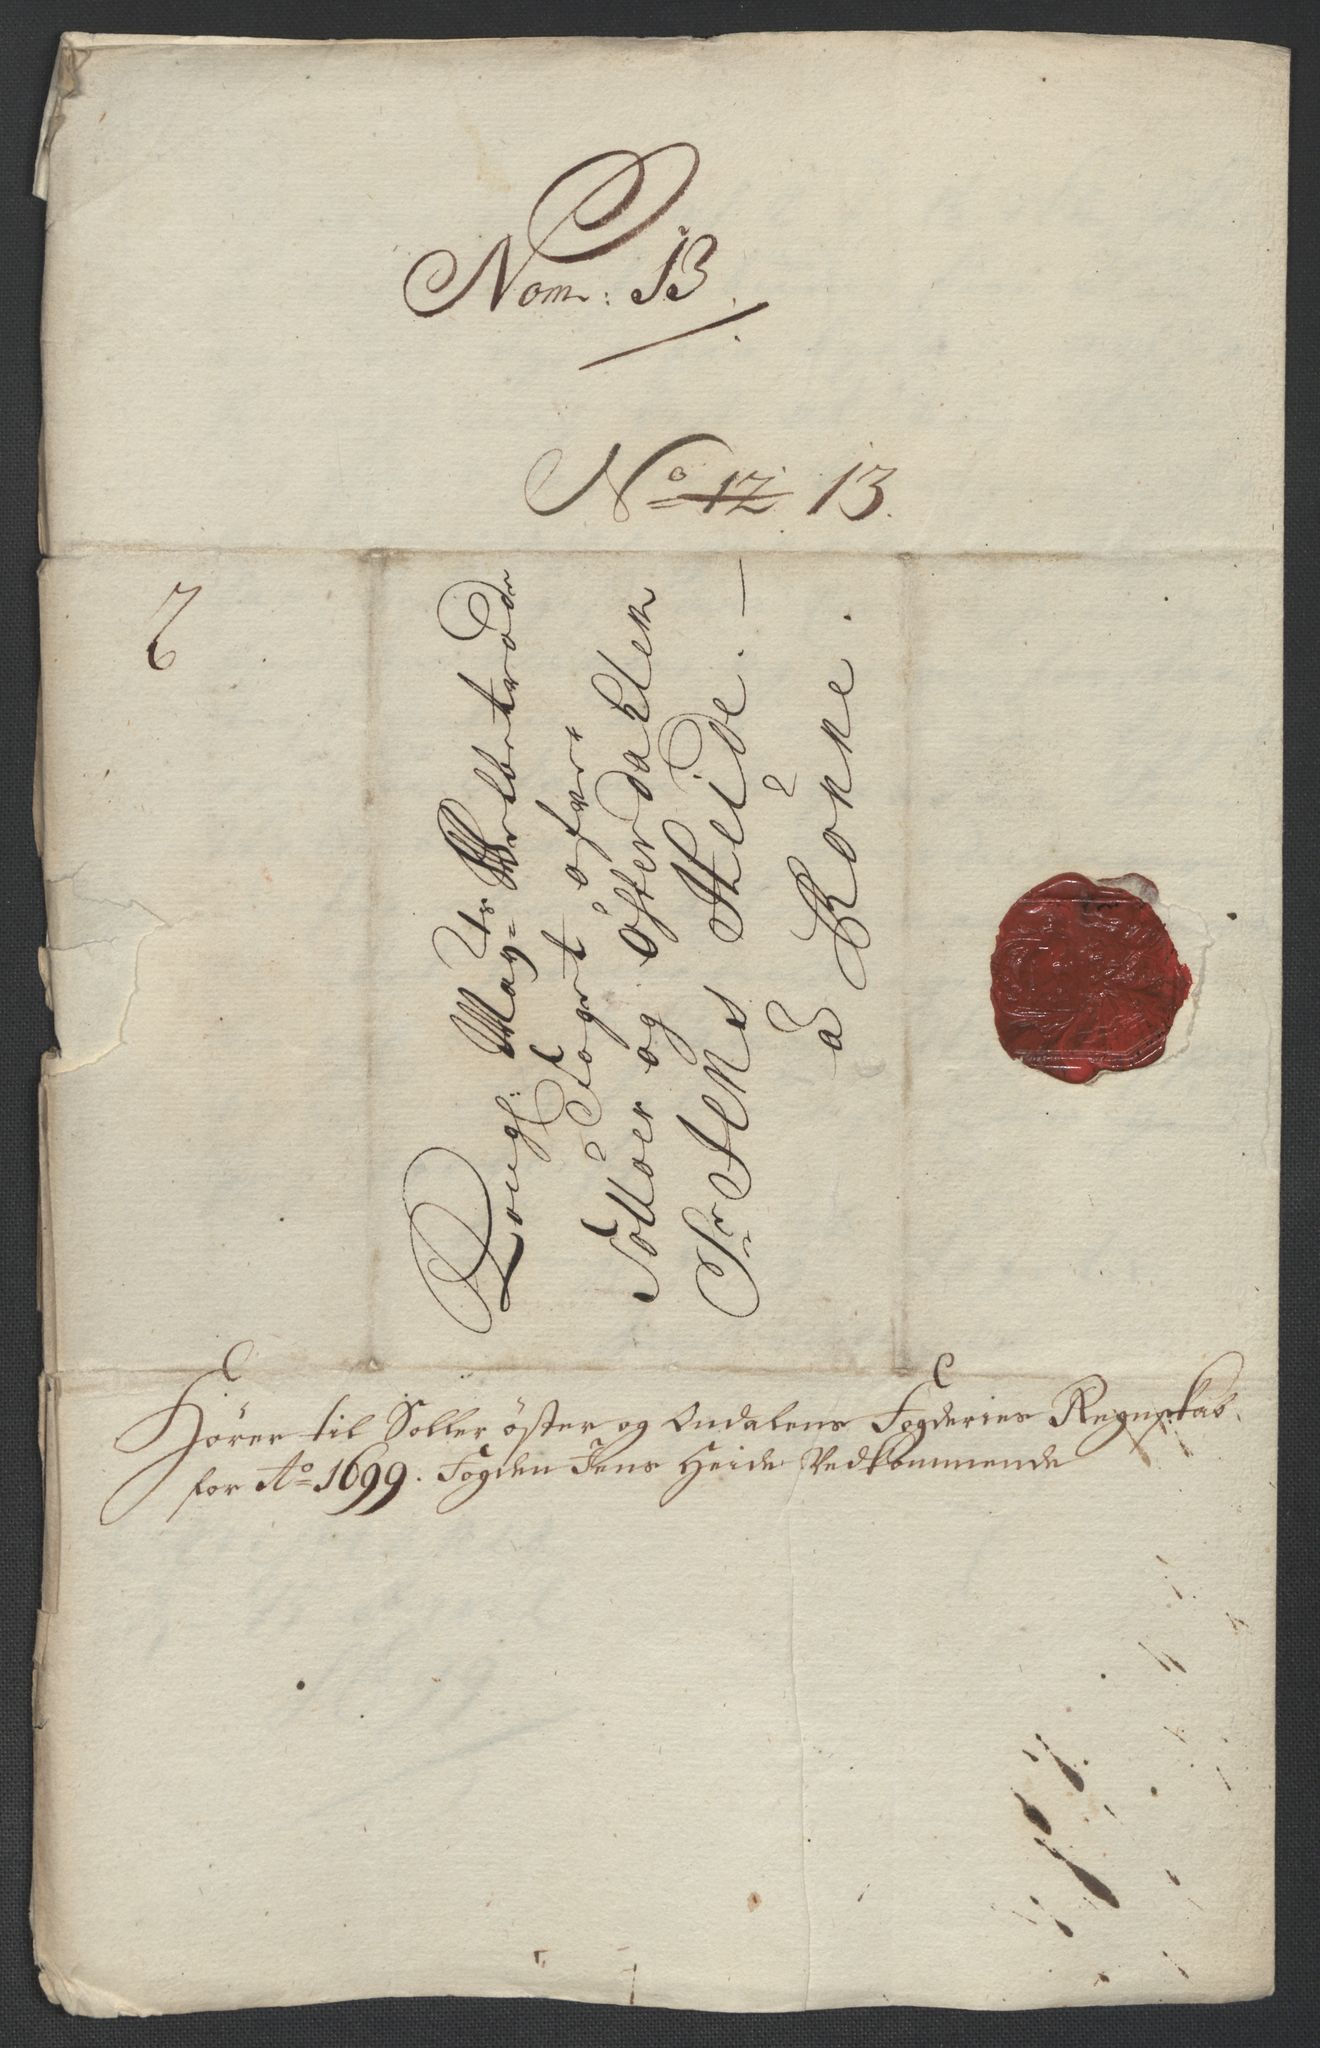 Nom: 13.
No 12 13.
7
Kongl: May:ts Welbetrode
Fogt ofver
Solloer og Østerdahlen
Sr Jens Heide. —
à Rønne.
Hører til Soller øster og Oudalens Fogderies Regnskab.
for Ao 1699. Fogden Jens Heide Vedkommende